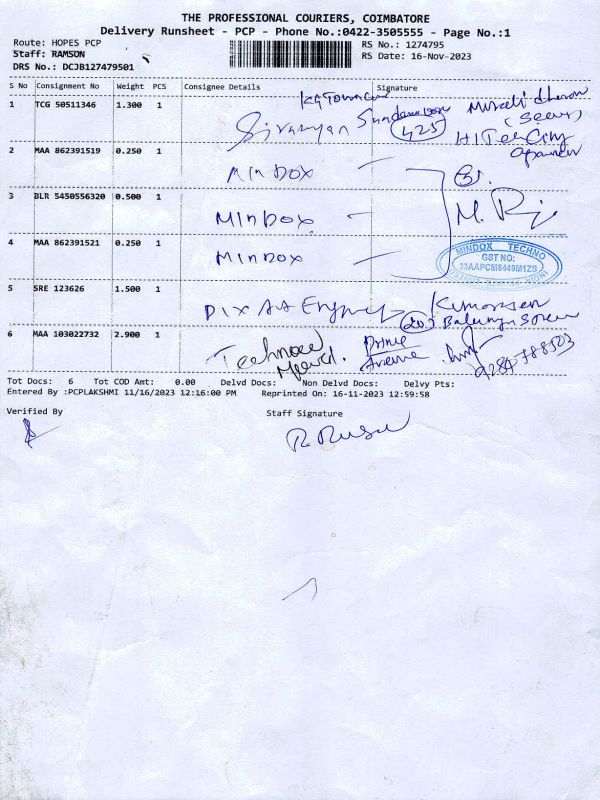 THE PROFESSIONAL COURIERS, COIMBATORE
Delivery Runsheet - PCP - Phone No.:0422-3505555 - Page No.:1
Route: HOPES PCP RS No.: 1274795
Staff: RAMSON RS Date: 16-Nov-2023
DRS No.: DCJB127479501
S No Consignment No Weight PCS Consignee Details Signature
1 TCG 50511346 1.300 1
Sundaram
425
HiTech City
2 MAA 862391519 0.250 1 Mindox
3 BLR 5450556320 0.500 1 Mindox M.
4 MAA 862391521 0.250 1 Mindox
MINDOX TECHNO
GST NO:
33AAPCM6449M1ZB
5 SRE 123626 1.500 1
203
6 MAA 103022732 2.900 1 Prime
Avenue
Tot Docs: 6 Tot COD Amt: 0.00 Delvd Docs: Non Delvd Docs: Delvy Pts:
Entered By :PCPLAKSHMI 11/16/2023 12:16:00 PM Reprinted On: 16-11-2023 12:59:58
Verified By Staff Signature